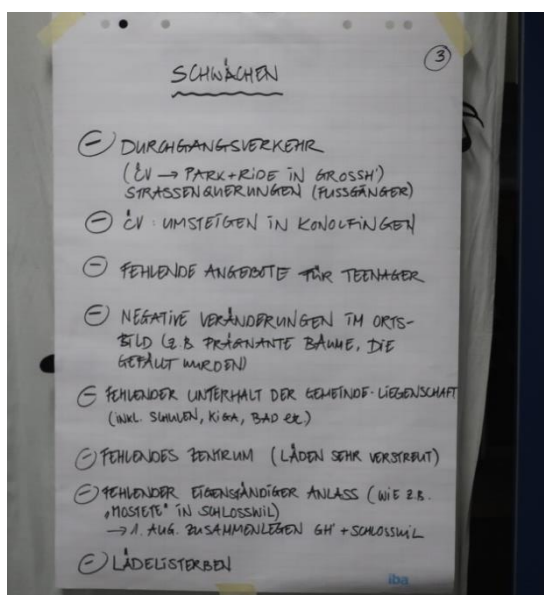 3
SCHWÄCHEN
⊖ DURCHGANGSVERKEHR
(ÖV → PARK+RIDE IN GROSSH')
STRASSENQUERUNGEN (FUSSGÄNGER)
⊖ ÖV: UMSTEIGEN IN KONOLFINGEN
⊖ FEHLENDE ANGEBOTE FÜR TEENAGER
⊖ NEGATIVE VERÄNDERUNGEN IM ORTS-
BILD (Z.B. PRÄGNANTE BÄUME, DIE
GEFÄLLT WURDEN)
⊖ FEHLENDER UNTERHALT DER GEMEINDE-LIEGENSCHAFT
(INKL. SCHULEN, KIGA, BAD etc.)
⊖ FEHLENDES ZENTRUM (LÄDEN SEHR VERSTREUT)
⊖ FEHLENDER EIGENSTÄNDIGER ANLASS (WIE Z.B.
„MOSTETE" IN SCHLOSSWIL)
→ 1. AUG. ZUSAMMENLEGEN GH' + SCHLOSSWIL
⊖ LÄDELISTERBEN
iba